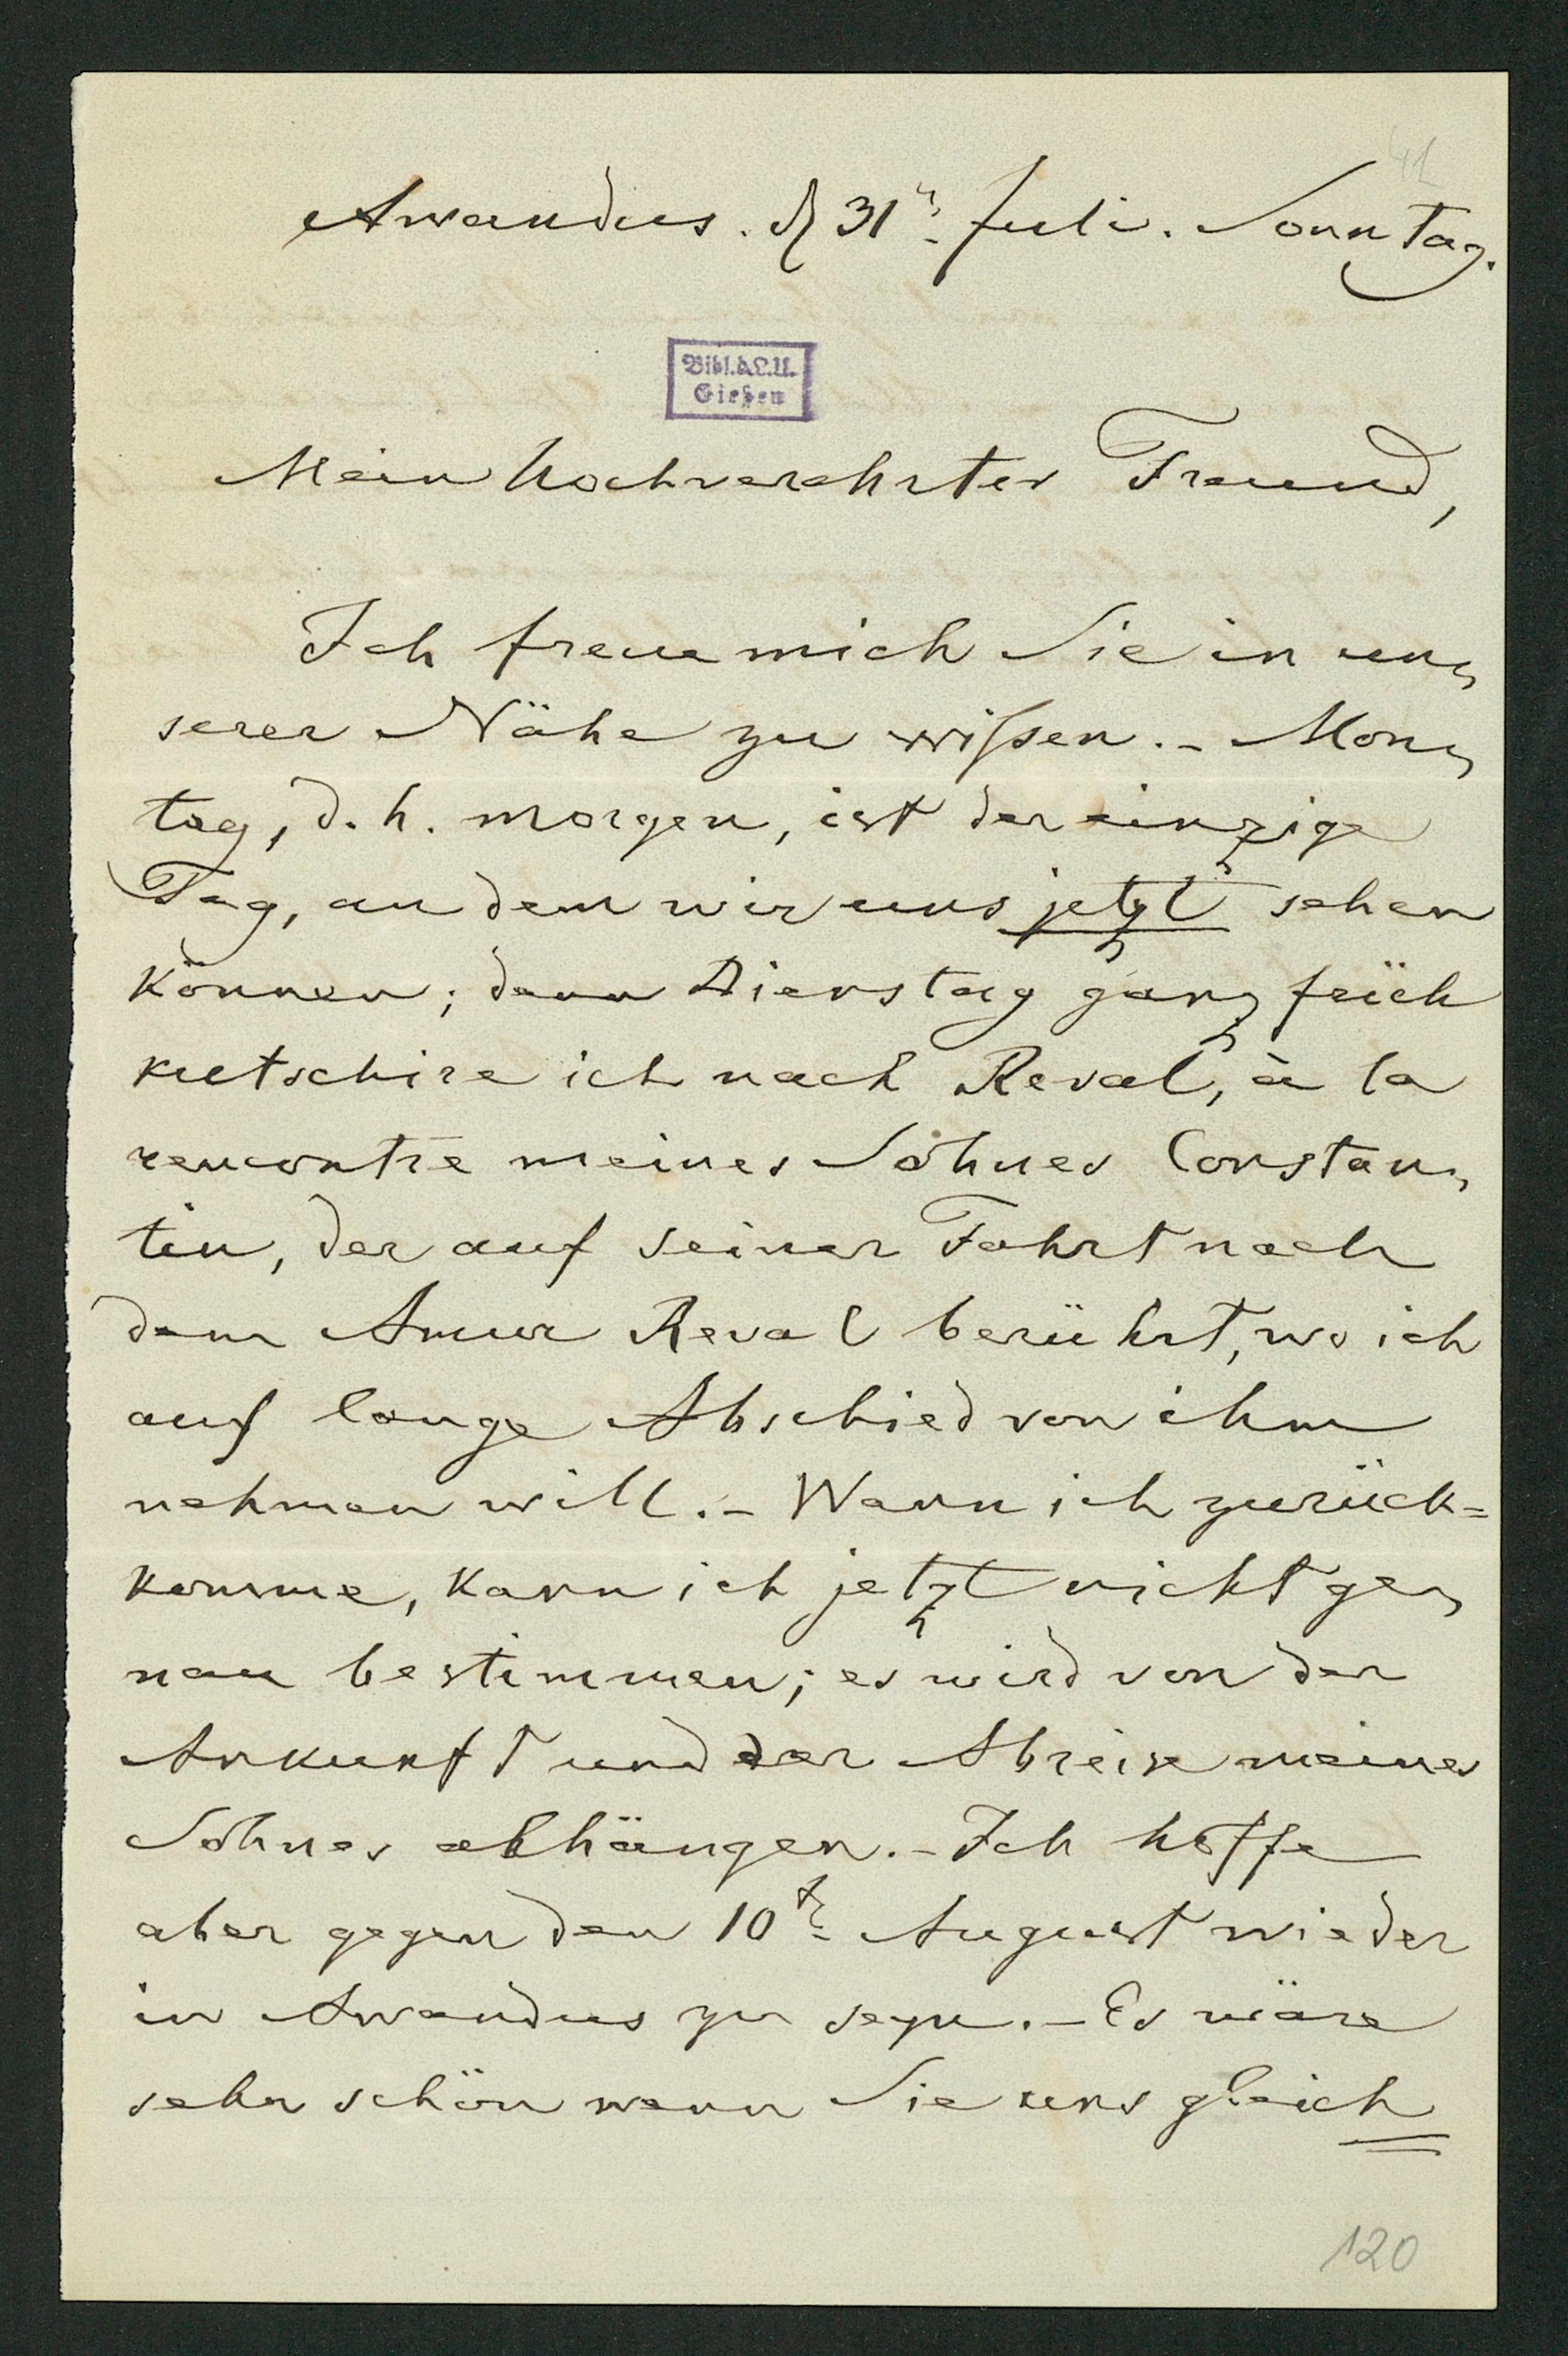 41
Awandus. d 31n. Juli. Sonntag.
Bibl.d.L.U.
Gießen
Mein hochverehrter Freund,
Ich freue mich Sie in un-
serer Nähe zu wissen. - Mon-
tag, d. h. morgen, ist der einzige
Tag, an dem wir uns jetzt sehen
können; denn Dienstag ganz früh
kutschire ich nach Reval, à la
rencontre meines Sohnes Constan-
tin, der auf seiner Fahrt nach
dem Amur Reval berührt, wo ich
auf lange Abschied von ihm
nehmen will. - Wann ich zurück=
komme, kann ich jetzt nicht ge-
nau bestimmen; es wird von der
Ankunft und der Abreise meines
Sohnes abhängen. - Ich hoffe
aber gegen den 10t. August wieder
in Awandus zu seyn. - Es wäre
sehr schön wenn Sie uns gleich
120